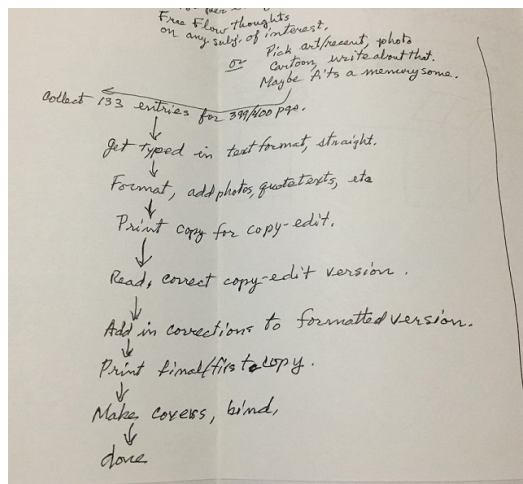 Free Flow thoughts
on any subj. of interest.
or Pick art/recent, photo
Cartoon, write about that.
Maybe it's a memory some.
Collect 133 entries for 399/400 pgs.
Get typed in text format, straight.
Format, add photos, quote texts, etc
Print copy for copy-edit.
Read, correct copy-edit version.
Add in corrections to formatted version.
Print final/first copy.
Make covers, bind,
done